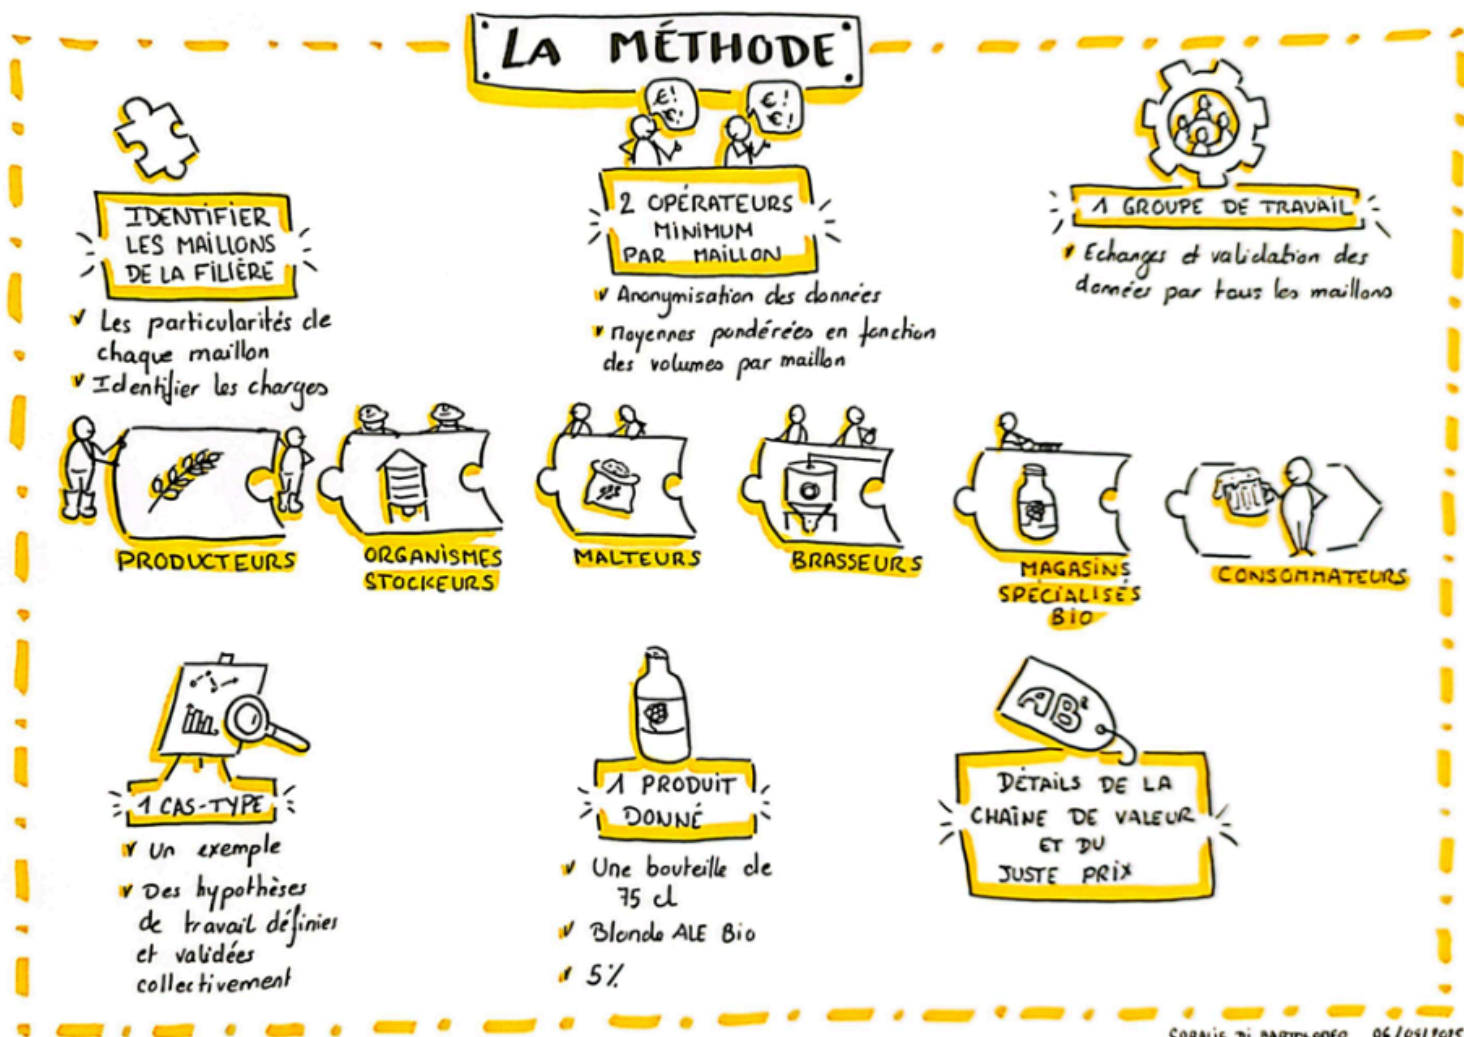 LA MÉTHODE
€!
€!
€!
€!
IDENTIFIER
LES MAILLONS
DE LA FILIÈRE
Les particularités de
chaque maillon
Identifier les charges
2 OPÉRATEURS
MINIMUM
PAR MAILLON
Anonymisation des données
Moyennes pondérées en fonction
des volumes par maillon
1 GROUPE DE TRAVAIL
Echanges et validation des
données par tous les maillons
PRODUCTEURS
ORGANISMES
STOCKEURS
MALTEURS
BRASSEURS
MAGASINS
SPÉCIALISÉS
BIO
CONSOMMATEURS
1 CAS-TYPE
Un exemple
Des hypothèses
de travail définies
et validées
collectivement
1 PRODUIT
DONNÉ
Une bouteille de
75 cl
Blonde ALE Bio
5%
AB
DÉTAILS DE LA
CHAÎNE DE VALEUR
ET DU
JUSTE PRIX
DI BARTOLOMEO